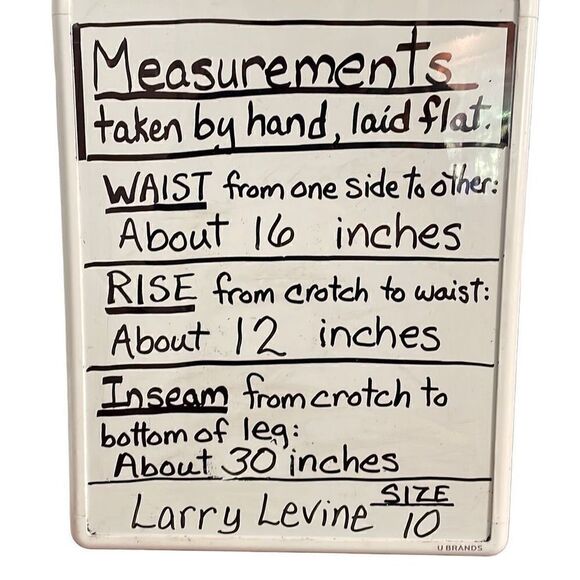 Measurements
taken by hand, laid flat.
WAIST from one side to other:
About 16 inches
RISE from crotch to waist:
About 12 inches
Inseam from crotch to
bottom of leg:
About 30 inches
Larry Levine SIZE 10
U BRANDS